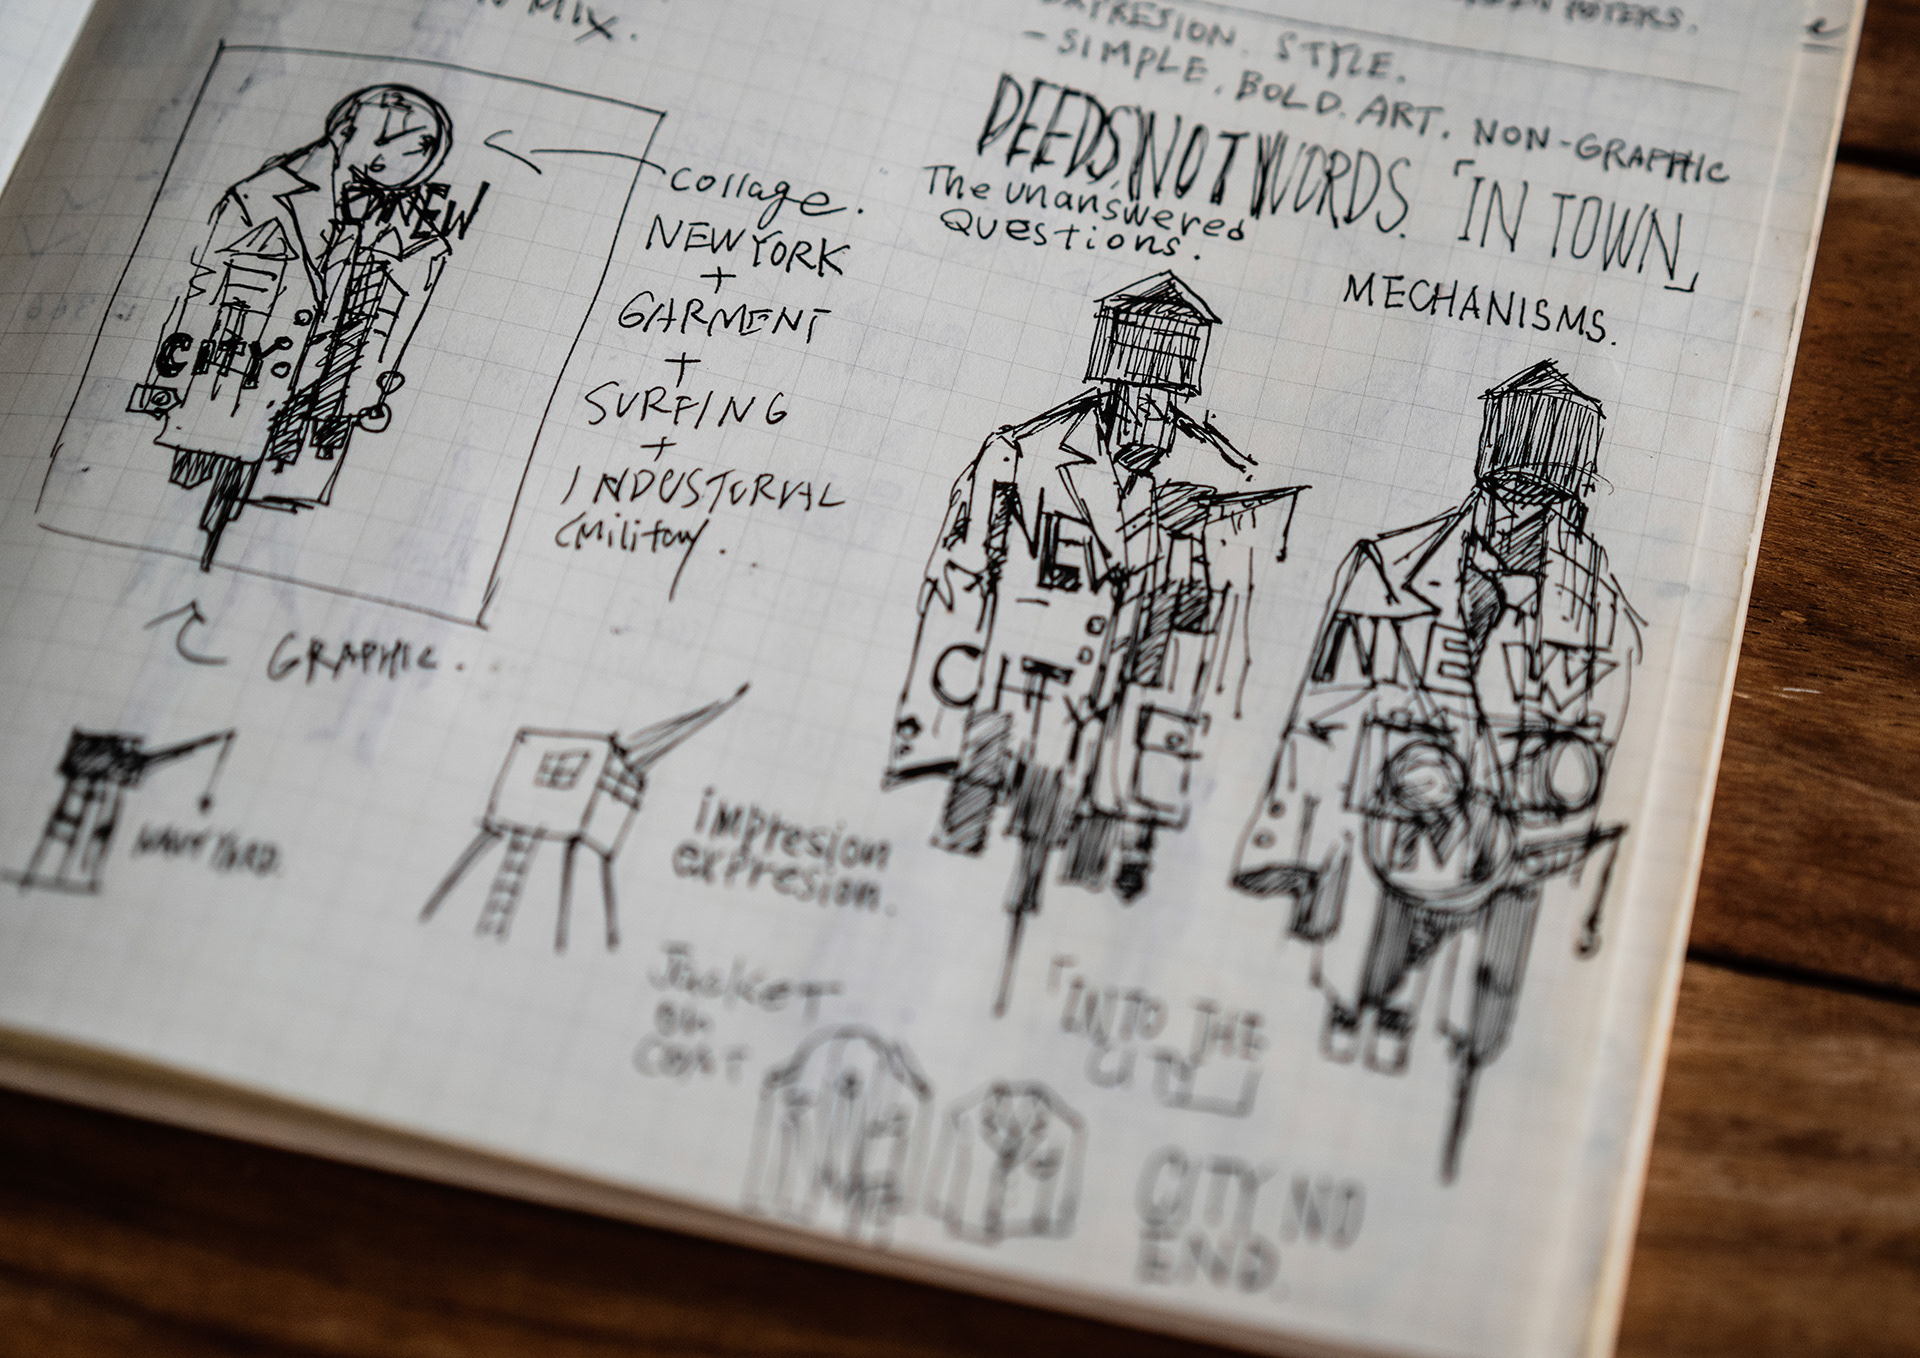 MIX.
EXPRESION. STYLE.
- SIMPLE. BOLD. ART. NON-GRAPHIC
DEEDS NOT WORDS.
「IN TOWN」
The unanswered
Questions.
MECHANISMS.
collage.
NEWYORK
+
GARMENT
+
SURFING
+
INDUSTURIAL
(Military.
NEW
CITY
GRAPHIC.
NEW
CITY
E
NEW
N
NAVY YARD.
impresion
expresion.
Jacket
on
COAT
「INTO THE
CITY」
CITY NO
END.